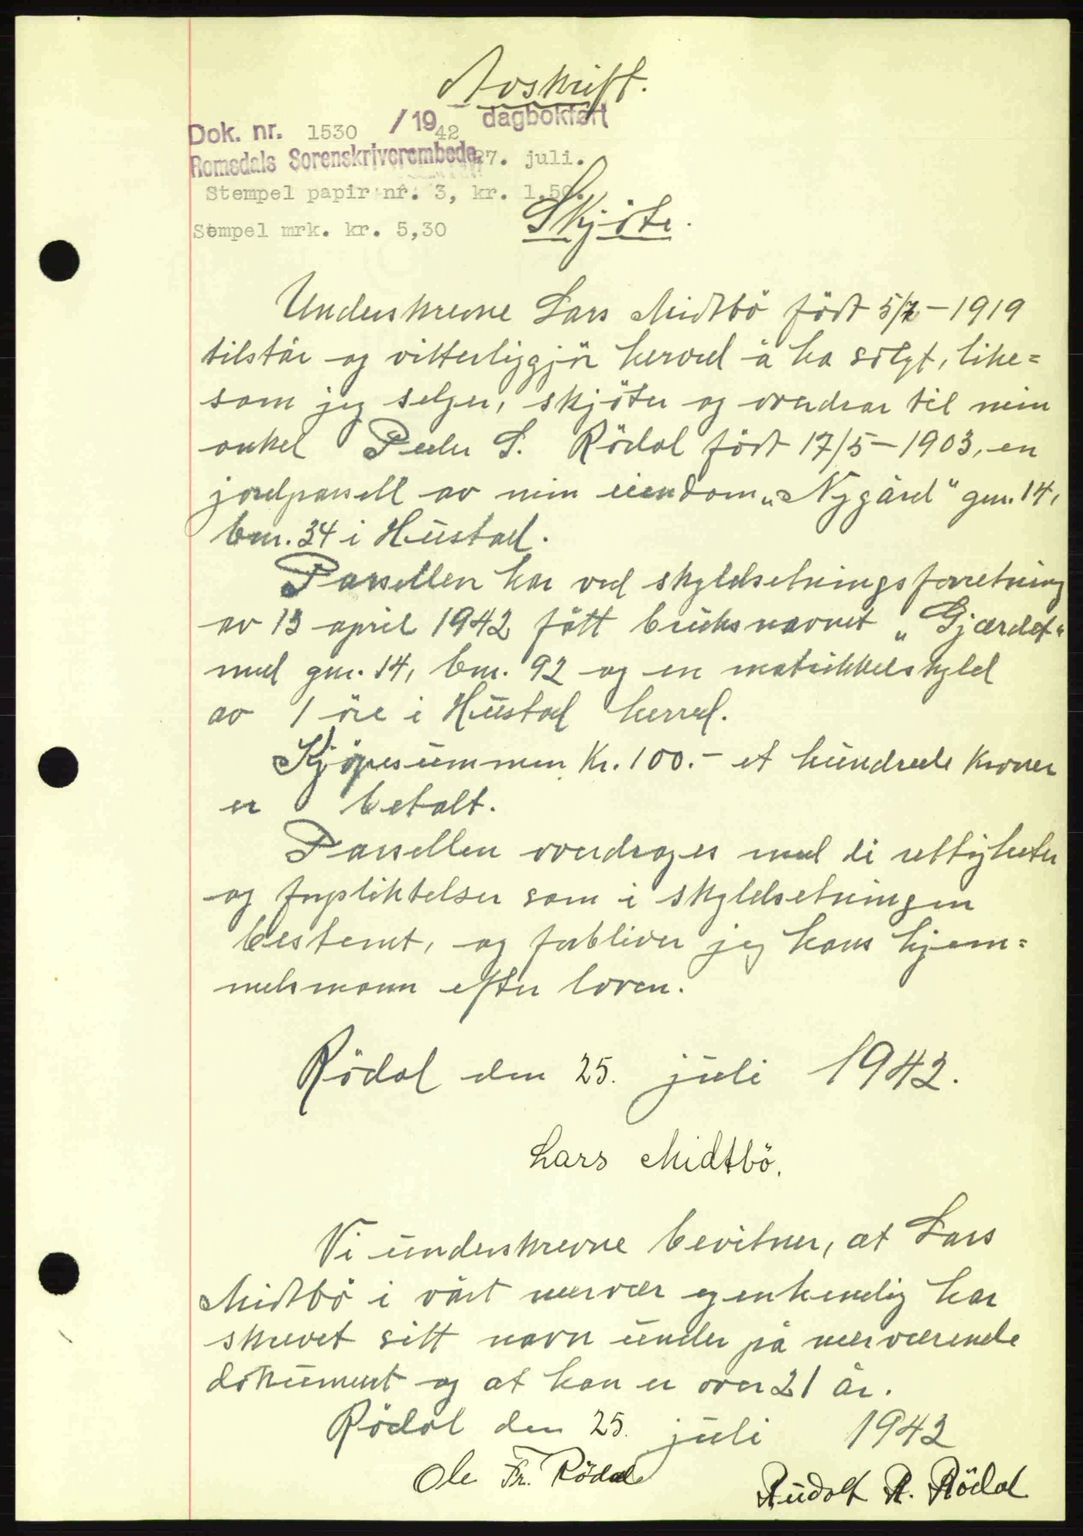 Avskrift.
Dok. nr. 1530 / 1942 dagbokført
Romsdals Sorenskriverembede 27. juli.
Stempel papir nr. 3, kr. 1.50.
Stempel mrk. kr. 5,30
Skjöte.
Underskrevne Lars Midtbö födt 5/7-1919
tilstår og vitterliggjör herved å ha solgt, like=
som jeg selger, skjöter og overdrar til min
onkel Peder S. Rödal födt 17/5-1903, en
jordparsell av min eiendom „Nygård" gnr. 14,
bnr. 34 i Hustad.
Parsellen har ved skyldsetningsforretning
av 13 april 1942 fått bruksnavnet „Gjærdet"
med gnr. 14, bnr. 92 og en matrikkelskyld
av 1 öre i Hustad herred.
Kjöpesummen Kr. 100.- et hundrede kroner
er betalt.
Parsellen overdrages med de rettigheter
og forpliktelser som i skyldsetningen
bestemt, og forbliver jeg hans hjem=
melsmann efter loven.
Rödal den 25. juli 1942.
Lars Midtbö.
Vi underskrevne bevitner, at Lars
Midtbö i vårt nærvær egenhendig har
skrevet sitt navn under på nærværende
dokument og at han er over 21 år.
Rödal den 25. juli 1942
Ole Fr. Rödal
Rudolf R. Rödal